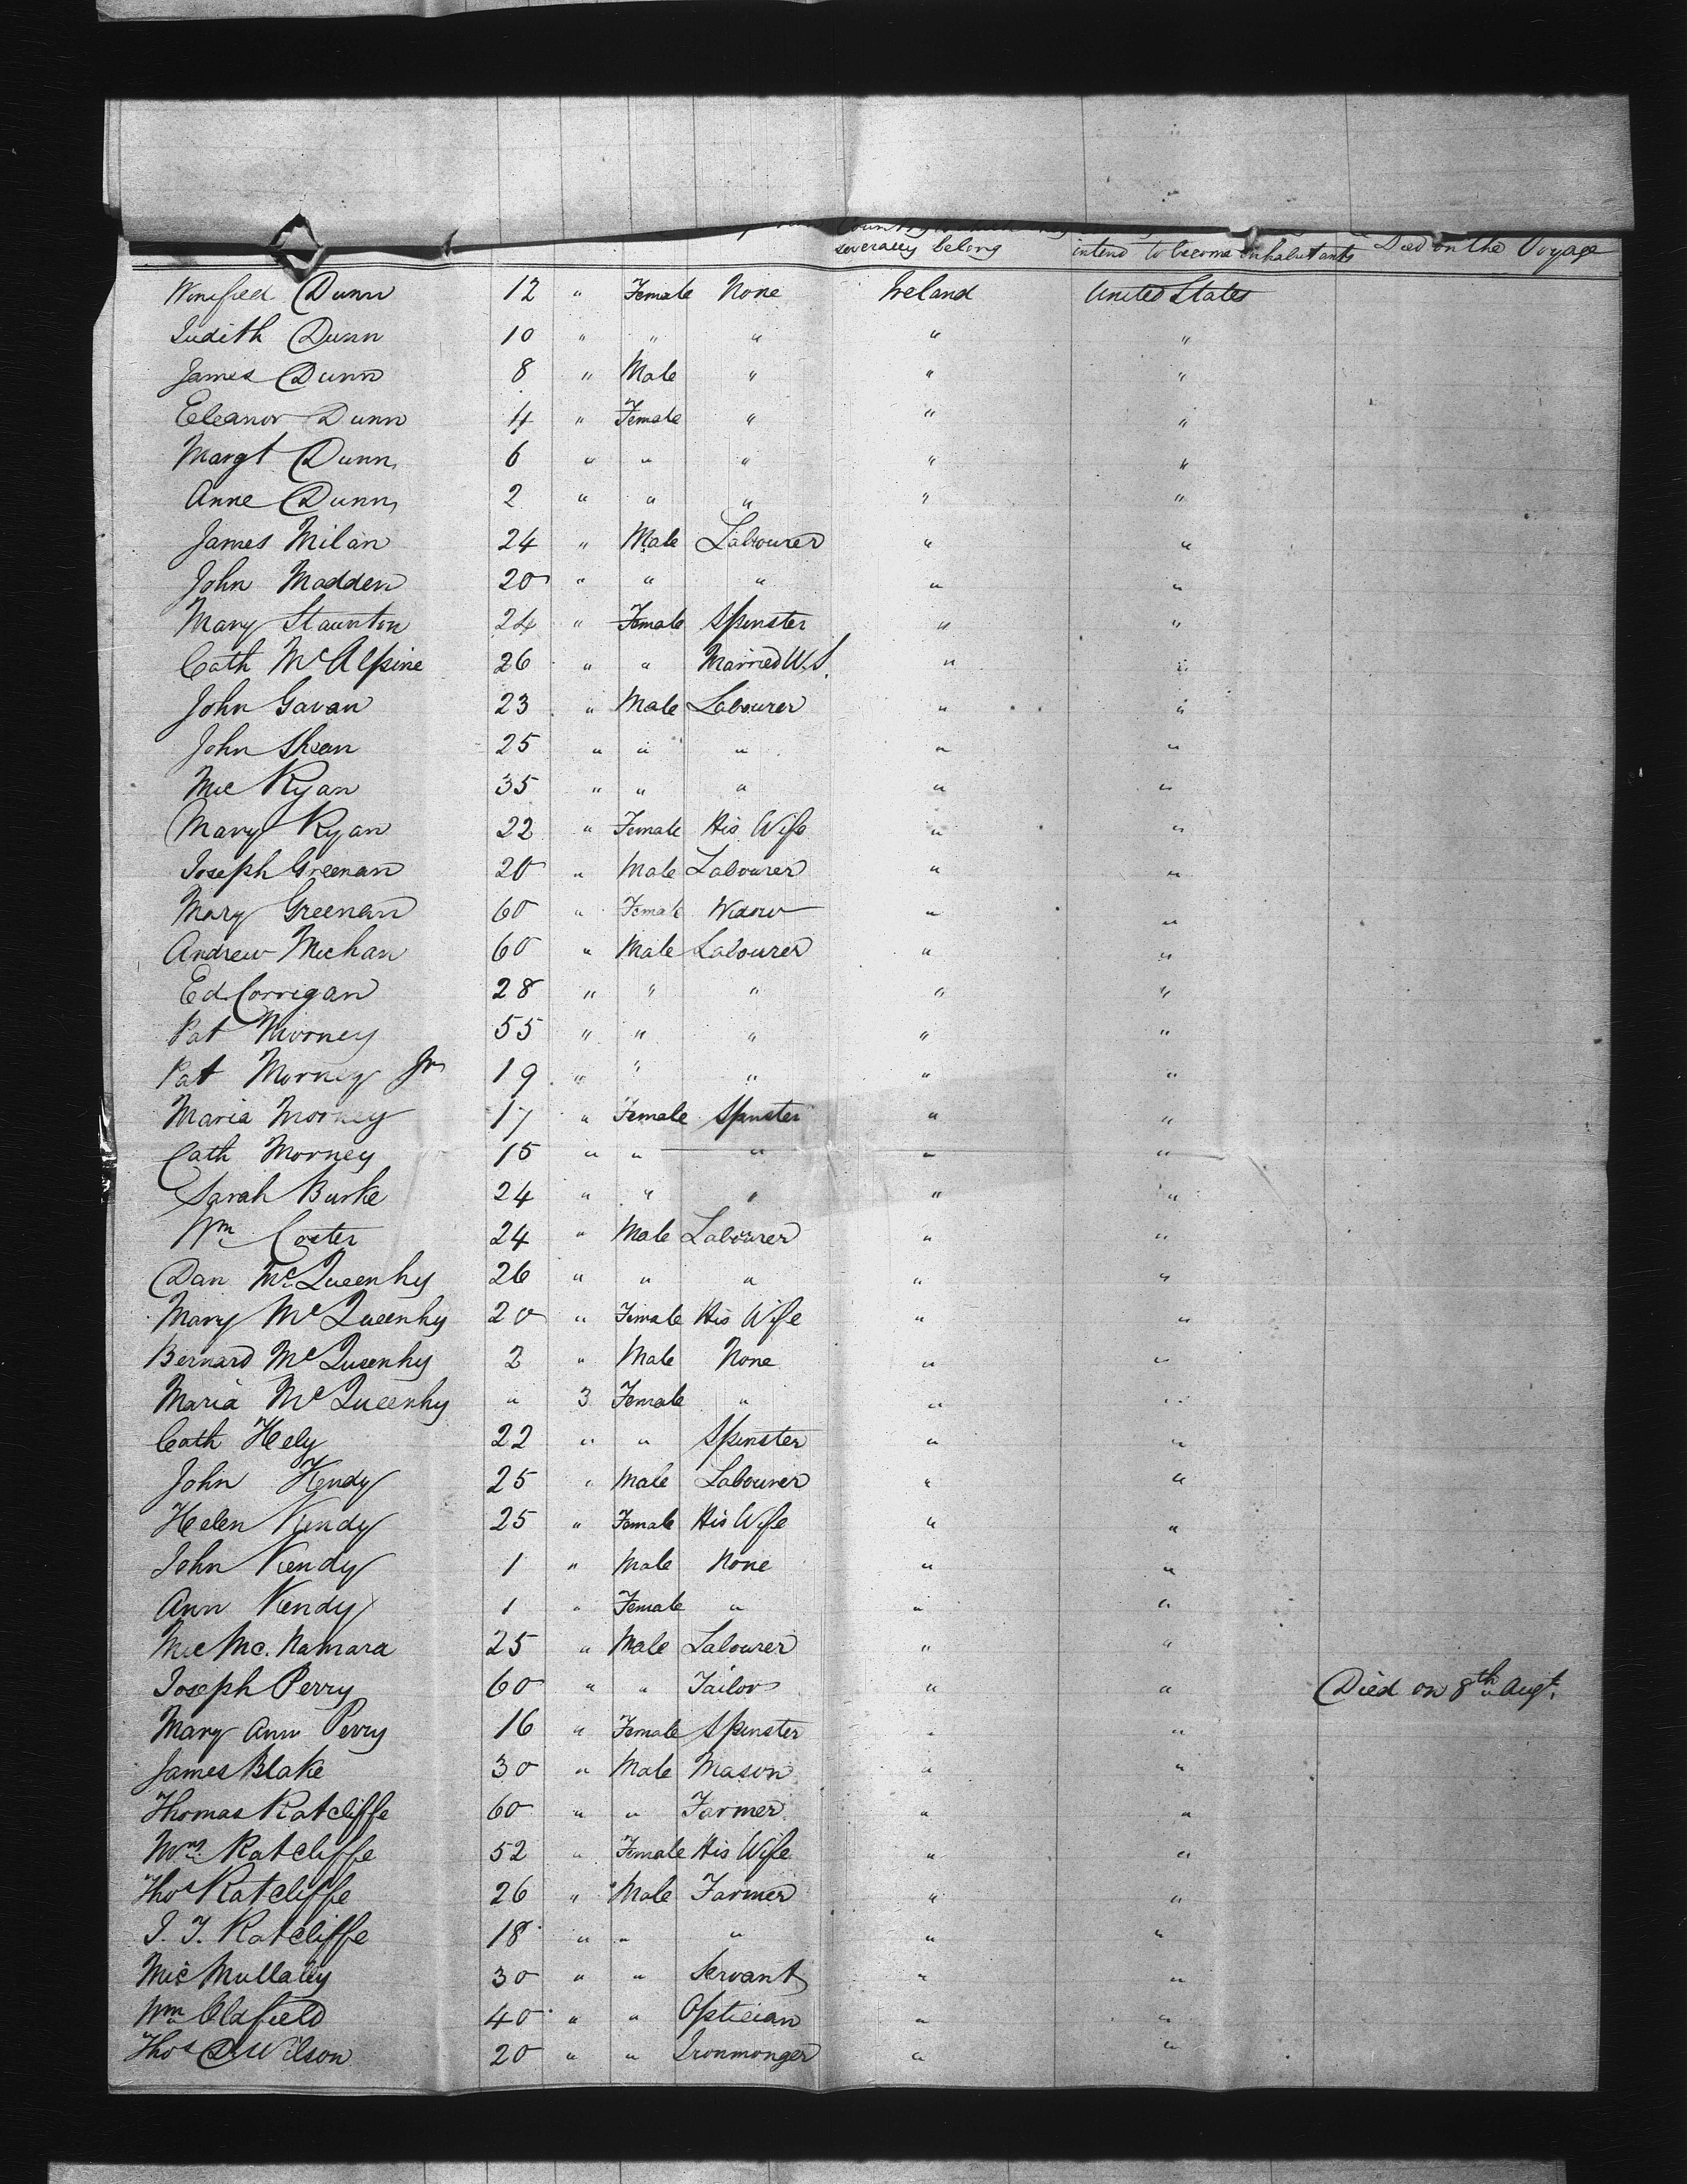 severally belong intend to become inhabitants Died on the Voyage
Winefred Dunn 12 " Female None Ireland United States
Judith Dunn 10 " " " " "
James Dunn 8 " Male " " "
Eleanor Dunn 4 " Female " " "
Margt Dunn 6 " " " " "
Anne Dunn 2 " " " " "
James Milan 24 " Male Labourer " "
John Madden 20 " " " " "
Mary Staunton 24 " Female Spinster " "
Cath McAlpine 26 " " Married W.S. " "
John Gavan 23 " Male Labourer " "
John Shean 25 " " " " "
Mic Ryan 35 " " " " "
Mary Ryan 22 " Female His Wife " "
Joseph Greenan 20 " Male Labourer " "
Mary Greenan 60 " Female Widow " "
Andrew Mechan 60 " Male Labourer " "
Ed Corrigan 28 " " " " "
Pat Morney 55 " " " " "
Pat Morney Jr 19 " " " " "
Maria Morney 17 " Female Spinster " "
Cath Morney 15 " " " " "
Sarah Burke 24 " " " " "
Wm Coster 24 " Male Labourer " "
Dan McQueenhy 26 " " " " "
Mary McQueenhy 20 " Female His Wife " "
Bernard McQueenhy 2 " Male None " "
Maria McQueenhy " 3 Female " " "
Cath Hely 22 " " Spinster " "
John Kendy 25 " Male Labourer " "
Helen Kendy 25 " Female His Wife " "
John Kendy 1 " Male None " "
Ann Kendy 1 " Female " " "
Mic Mc.Namara 25 " Male Labourer " "
Joseph Perry 60 " " Tailor " " Died on 8th Augt.
Mary Ann Perry 16 " Female Spinster " "
James Blake 30 " Male Mason " "
Thomas Ratcliffe 60 " " Farmer " "
Ratcliffe 52 " Female His Wife " "
Thos Ratcliffe 26 " Male Farmer " "
J. T. Ratcliffe 18 " " " " "
Mic Mullally 30 " " Servant " "
Wm Oldfield 40 " " Optician " "
Thos D Wilson 20 " " Ironmonger " "